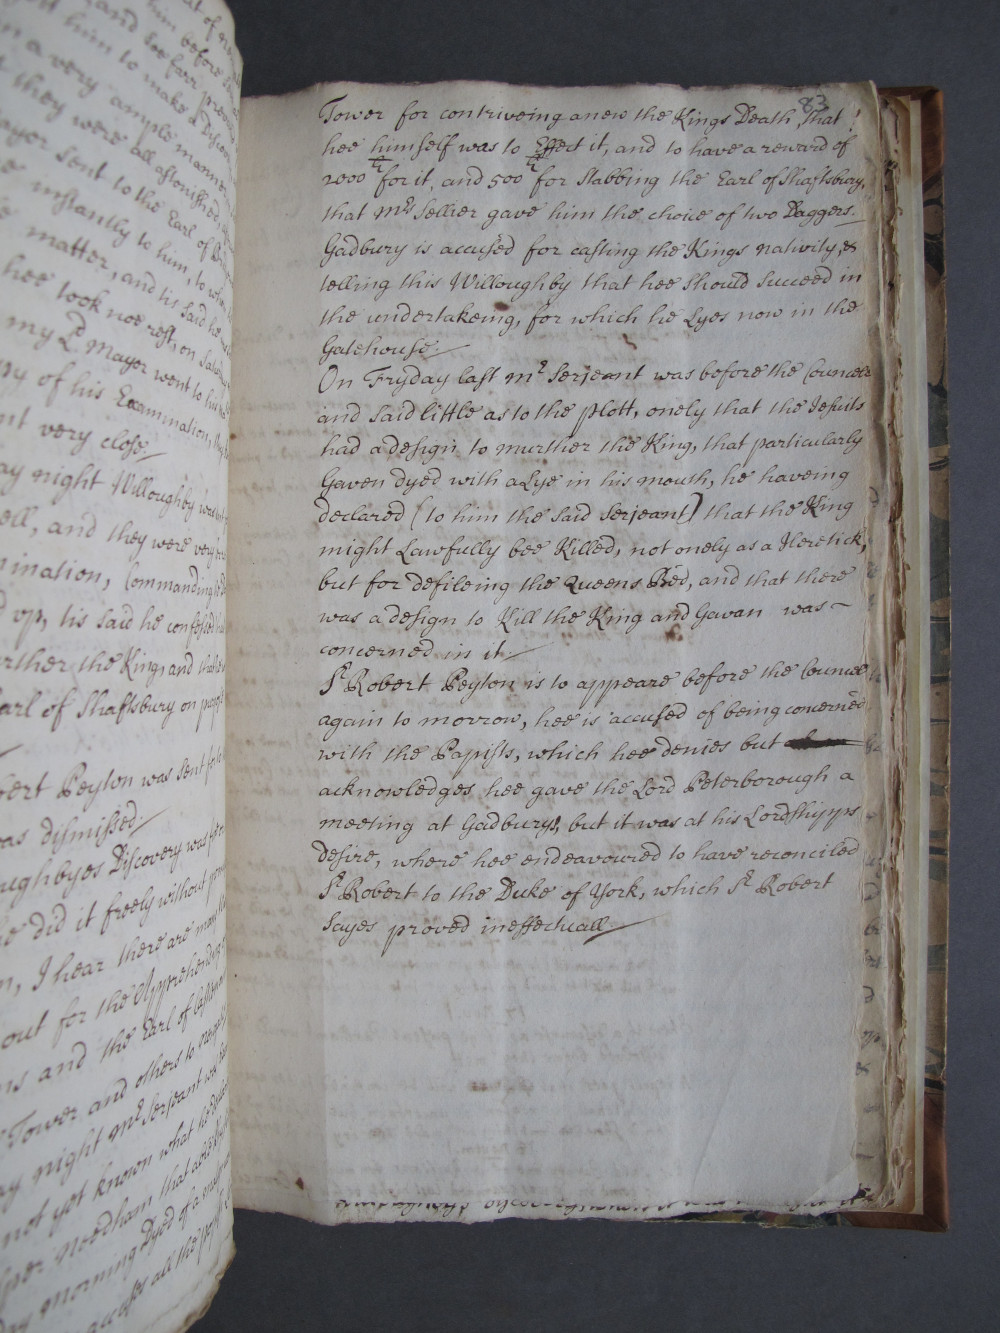 83
Tower for contriveing anew the Kings Death, that
hee himself was to Effect it, and to have a reward of
2000 ll for it, and 500 ll for Stabbing the Earl of Shaftsbury,
that Mr Sellier gave him the choice of two Daggers.
Gadbury is accused for casting the Kings nativity, &
telling this Willoughby that hee should succeed in
the undertakeing, for which he Lyes now in the
Gatehouse.
On Fryday last Mr Serjeant was before the Councel
and said little as to the plott, onely that the Jesuits
had a design to murther the King, that particularly
Gaven dyed with a Lye in his mouth, he haveing
declared (to him the said Serjeant) that the King
might Lawfully bee Killed, not onely as a Heretick,
but for defileing the Queens Bed, and that there
was a design to Kill the King and Gavan was
concerned in it.
Sr Robert Peyton is to appeare before the Councel
again to morrow, hee is accused of being concerned
with the Papists, which hee denies but
acknowledges hee gave the Lord Peterborough a
meeting at Gadburys, but it was at his Lordshipps
desire, where hee endeavoured to have reconciled
Sr Robert to the Duke of York, which Sr Robert
sayes proved ineffectuall.
him before
him to make a Discov
n a very ample manner
they were all astonished,
ayor sent to the Earl of
instantly to him, to
matter, and tis said he
hee took noe rest, on Saturday
my Ld Mayor went to his
py of his Examination, they
nt very close.
ay night Willoughby was
ell, and they were very
mination, Commanding
d up, tis said he confessed
rther the King, and
arl of Shaftsbury on
bert Peyton was sent for
as dismissed.
oughbyes Discovery was
e did it freely without
n, I hear there are many
out for the Apprehending
ns and the Earl of
Tower and others to
ay night Mr Serjeant
not yet known what he
per Needham that
day morning Dyed of a
accuses all the